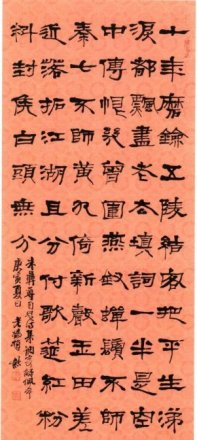 十年磨鐱五陵結客把平生涕
淚都飄盡老去填詞一半是空
中傳恨幾曾圍燕釵蟬鬢不師
秦七不師黃九倚新聲玉田差
近落拓江湖且分付歌筵紅粉
料封侯白頭無分
朱彝尊自題詞集調寄解佩令
庚寅夏日